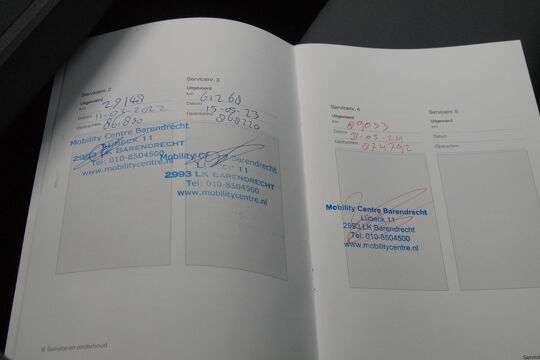 Servicenr. 2
Uitgevoerd
km 29148
Datum 11-03-2022
Opdrachtnr.
Mobility Centre Barendrecht
Lübeck 11
2993 LK Barendrecht
Tel: 010-8504500
www.mobilitycentre.nl
Servicenr. 3
Uitgevoerd
km 61268
Datum 15-05-23
Opdrachtnr. 868220
Mobility Centre Barendrecht
Lübeck 11
2993 LK Barendrecht
Tel: 010-8504500
www.mobilitycentre.nl
8 Service en onderhoud
Servicenr. 4
Uitgevoerd
km 89033
Datum
Opdrachtnr. 874792
Mobility Centre Barendrecht
Lübeck 11
2993 LK Barendrecht
Tel: 010-8504500
www.mobilitycentre.nl
Servicenr. 5
Uitgevoerd
km
Datum
Opdrachtnr.
Service